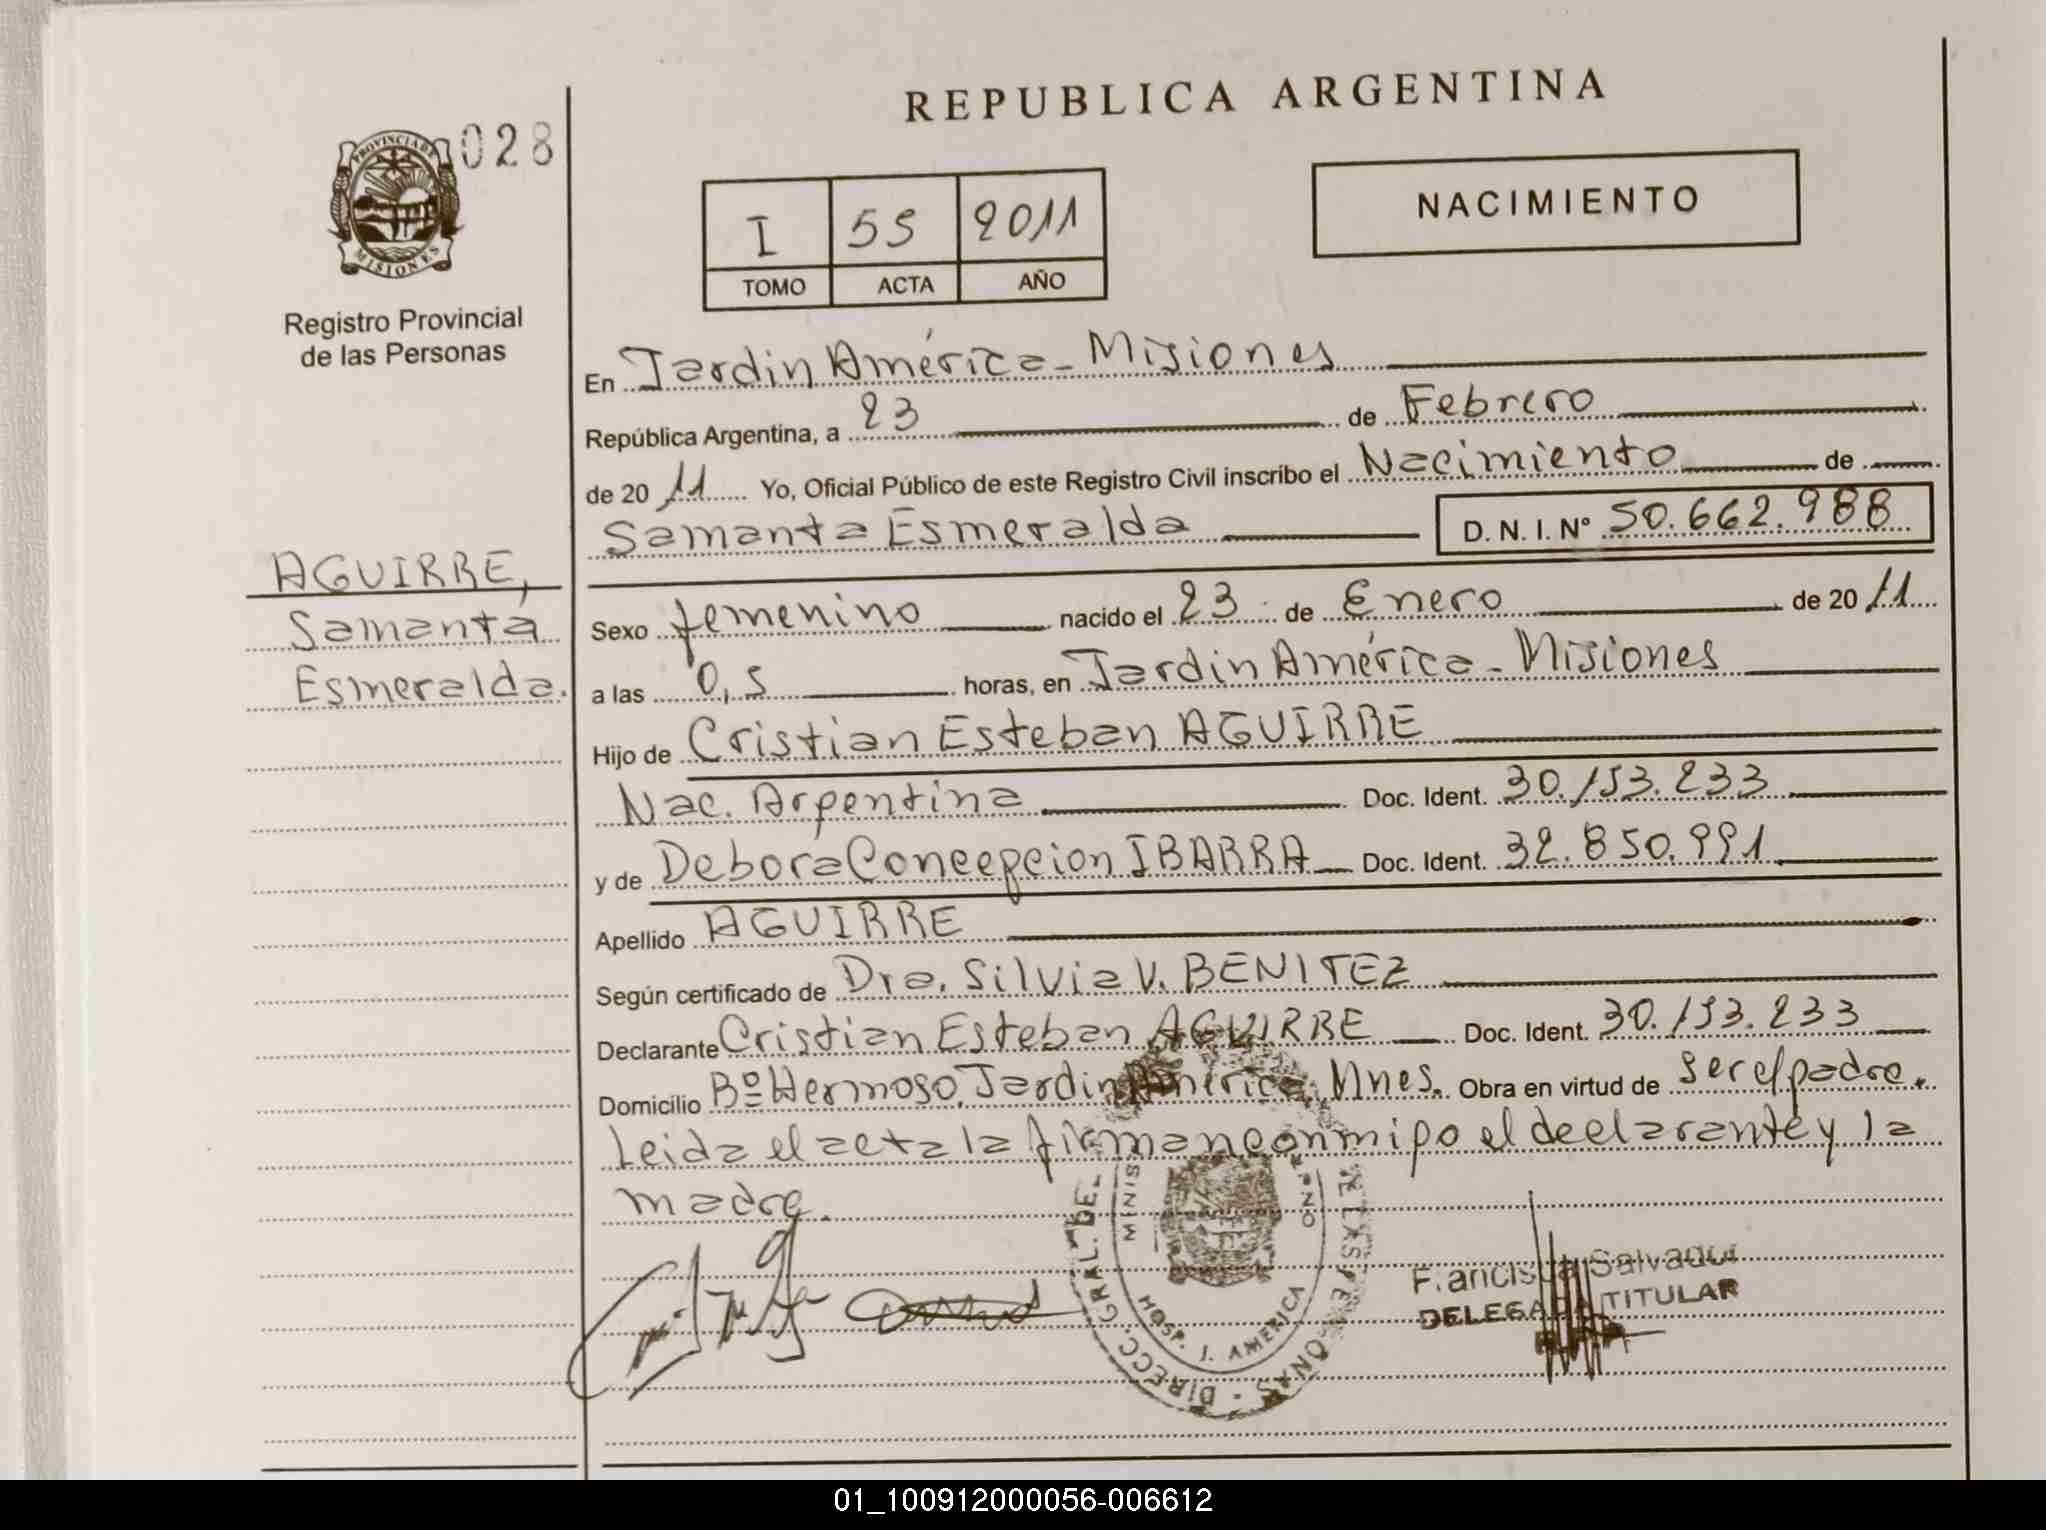 REPUBLICA ARGENTINA
028
PROVINCIA DE
MISIONES
Registro Provincial
de las Personas
I 55 2011
TOMO ACTA AÑO
NACIMIENTO
En Jardin América - Misiones
República Argentina, a 23 de Febrero
de 20 11 Yo, Oficial Público de este Registro Civil inscribo el Nacimiento de
Samanta Esmeralda D. N. I. Nº 50.662.988
AGUIRRE,
Samanta
Esmeralda.
Sexo femenino nacido el 23 de Enero de 20 11
a las 0,5 horas, en Jardin América - Misiones
Hijo de Cristian Esteban AGUIRRE
Nac. Argentina Doc. Ident. 30.153.233
y de Debora Concepcion IBARRA Doc. Ident. 32.850.991
Apellido AGUIRRE
Según certificado de Dra. Silvia V. BENITEZ
Declarante Cristian Esteban AGUIRRE Doc. Ident. 30.153.233
Domicilio Bº Hermoso, Jardin América, Mnes. Obra en virtud de ser el padre.
Leida el acta la firman conmigo el declarante y la
madre.
DIRECC. GRAL. DE
MINIS
HOSP. J. AMERICA
Salvador
DELEGADA TITULAR
01_100912000056-006612